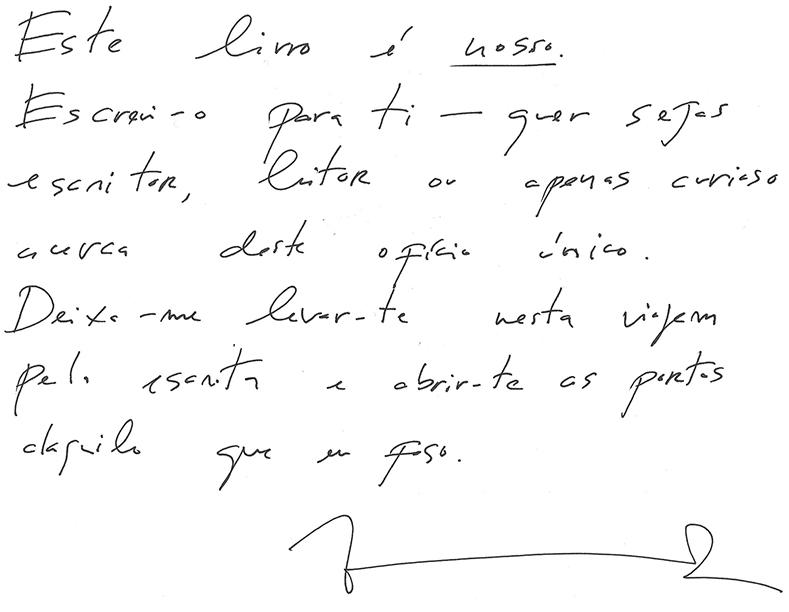 Este livro é nosso.
Escrevi-o para ti — quer sejas
escritor, leitor ou apenas curioso
acerca deste ofício único.
Deixa-me levar-te nesta viagem
pela escrita e abrir-te as portas
daquilo que eu faço.